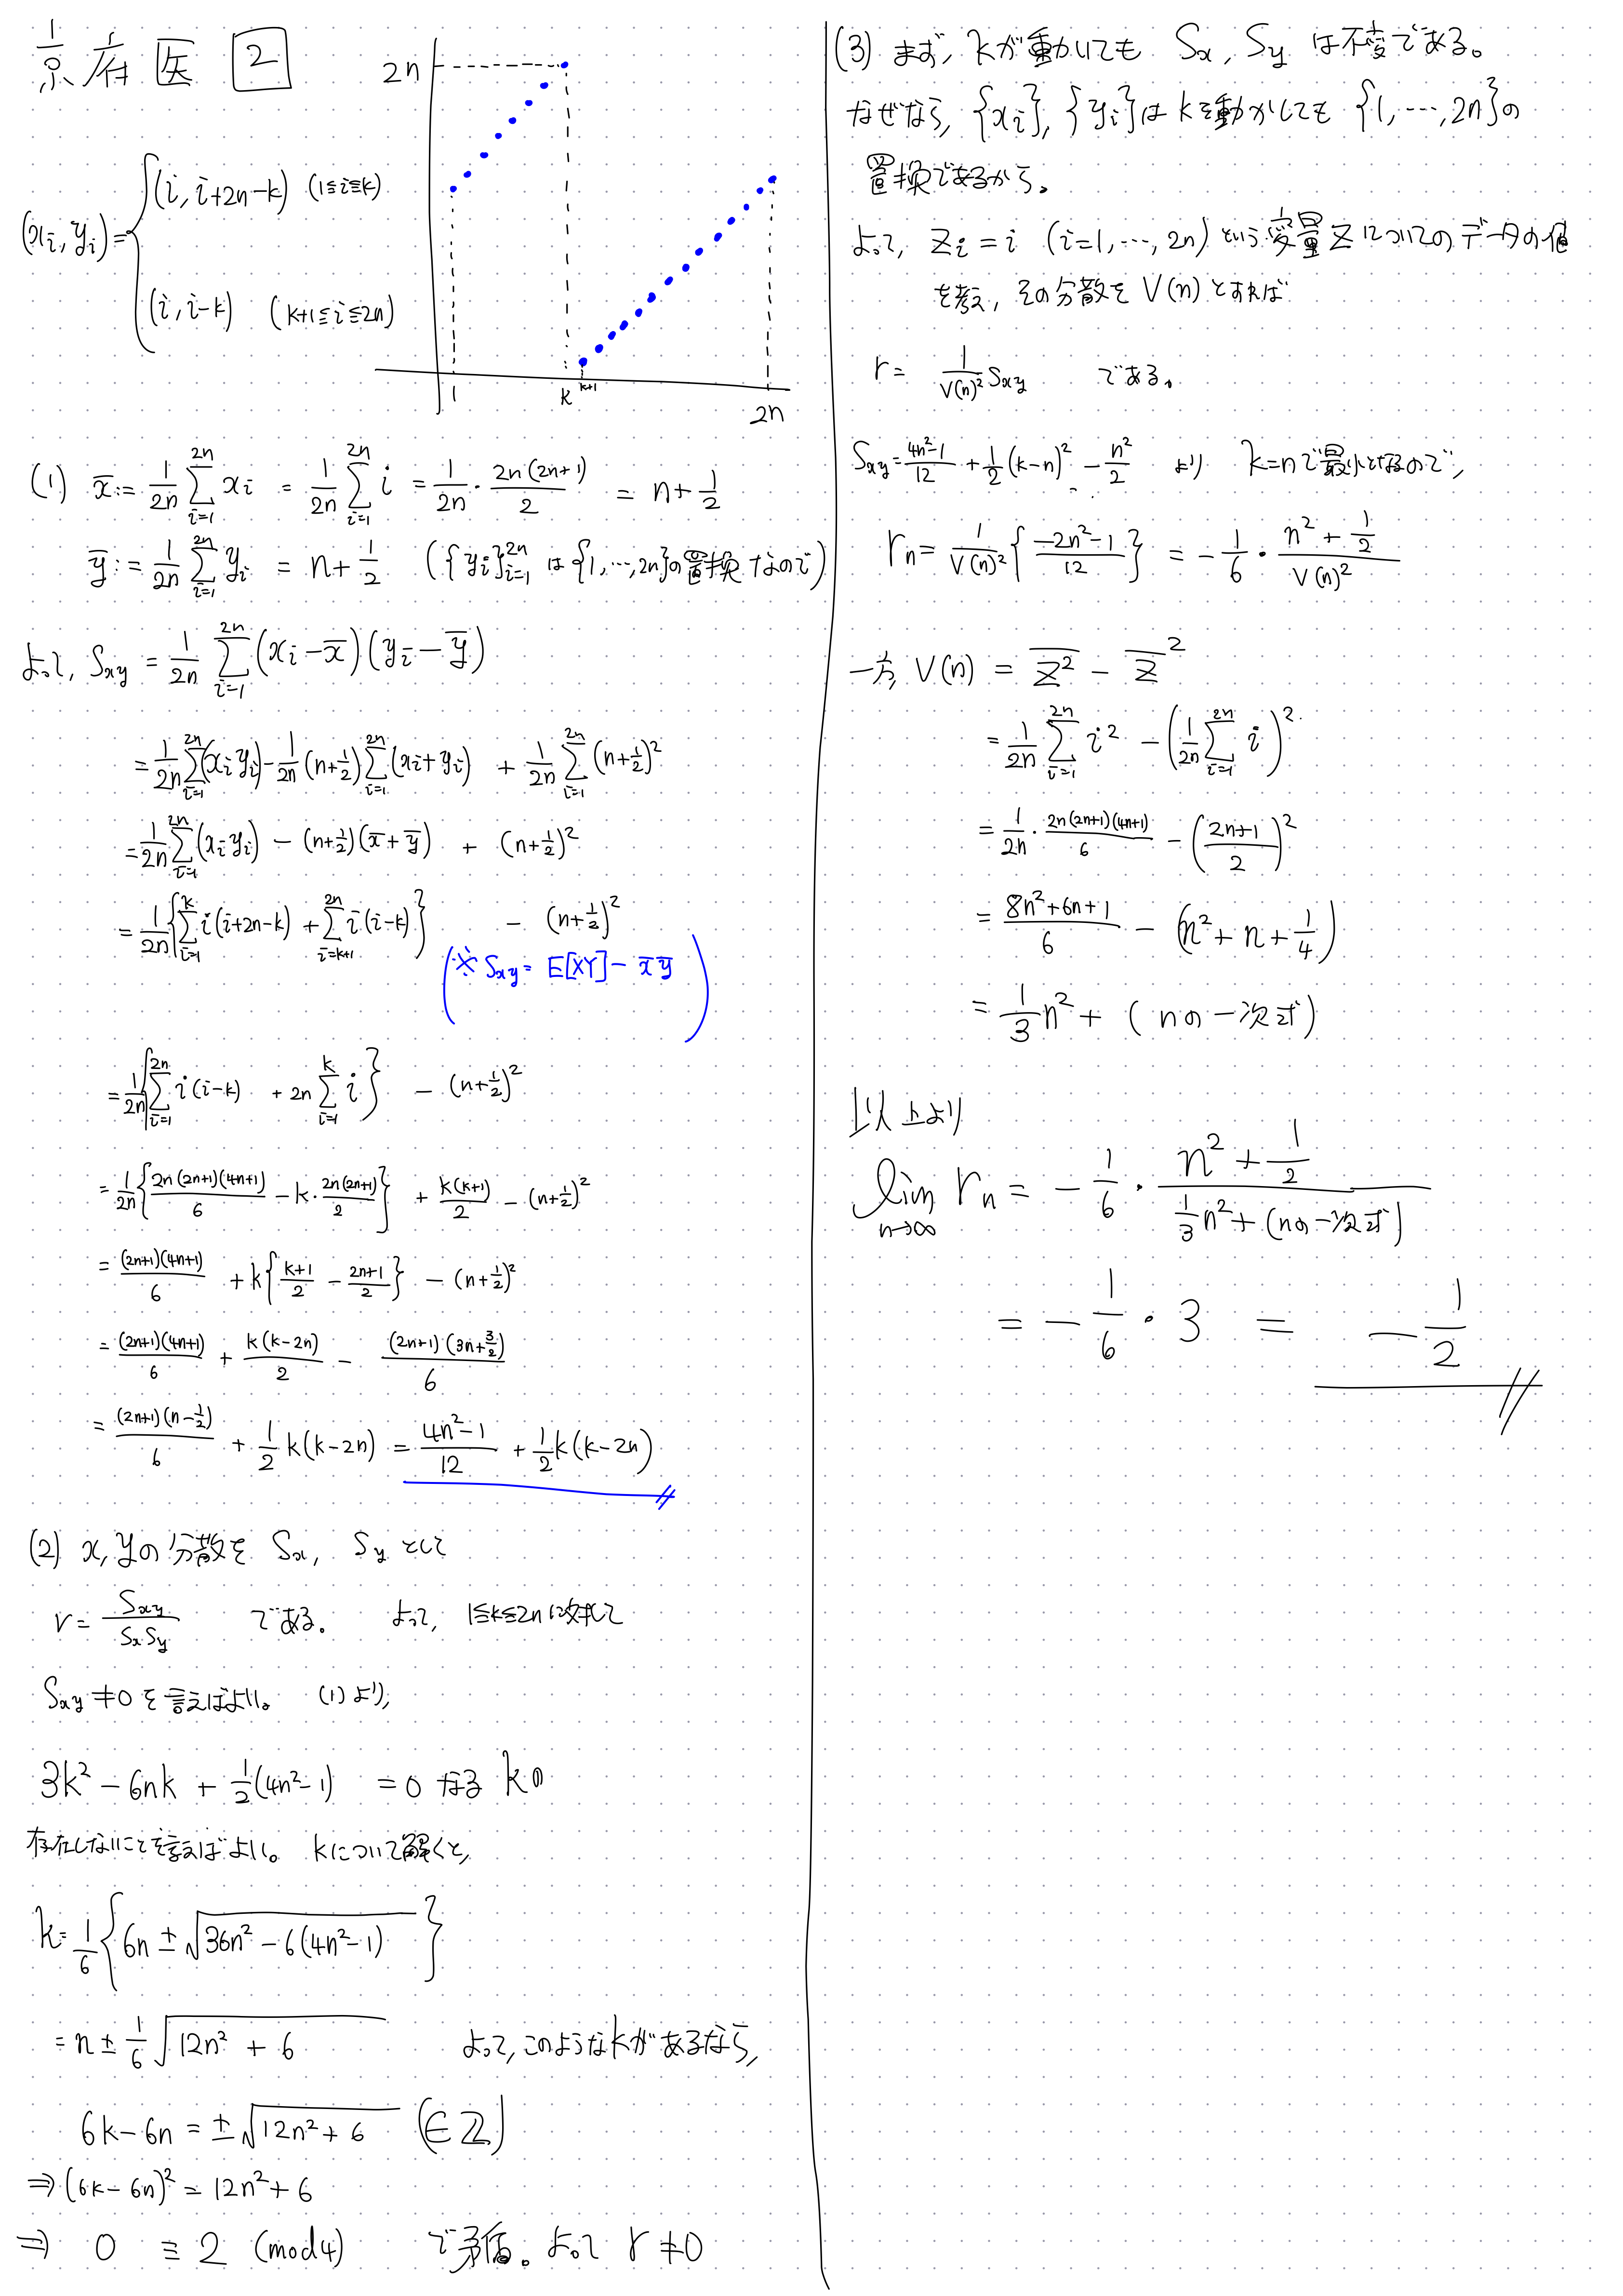 京府医 2
2n
1 k k+1 2n
(xi, yi) = { (i, i+2n-k) (1≦i≦k)
(i, i-k) (k+1≦i≦2n)
(1) x̄ := 1/2n Σ_{i=1}^{2n} xi = 1/2n Σ_{i=1}^{2n} i = 1/2n · 2n(2n+1)/2 = n+1/2
ȳ := 1/2n Σ_{i=1}^{2n} yi = n+1/2 ({yi}_{i=1}^{2n} は {1,…,2n}の置換なので)
よって, Sxy = 1/2n Σ_{i=1}^{2n} (xi-x̄)(yi-ȳ)
= 1/2n Σ_{i=1}^{2n} (xi yi) - 1/2n (n+1/2) Σ_{i=1}^{2n} (xi+yi) + 1/2n Σ_{i=1}^{2n} (n+1/2)²
= 1/2n Σ_{i=1}^{2n} (xi yi) - (n+1/2)(x̄+ȳ) + (n+1/2)²
= 1/2n { Σ_{i=1}^{k} i(i+2n-k) + Σ_{i=k+1}^{2n} i(i-k) } - (n+1/2)²
(※ Sxy = E[XY] - x̄ȳ)
= 1/2n { Σ_{i=1}^{2n} i(i-k) + 2n Σ_{i=1}^{k} i } - (n+1/2)²
= 1/2n { 2n(2n+1)(4n+1)/6 - k · 2n(2n+1)/2 } + k(k+1)/2 - (n+1/2)²
= (2n+1)(4n+1)/6 + k { (k+1)/2 - (2n+1)/2 } - (n+1/2)²
= (2n+1)(4n+1)/6 + k(k-2n)/2 - (2n+1)(3n+3/2)/6
= (2n+1)(n-1/2)/6 + 1/2 k(k-2n) = (4n²-1)/12 + 1/2 k(k-2n)
(2) x, yの分散を Sx, Sy として
r = Sxy/SxSy である。 よって, 1≦k≦2nに対して
Sxy ≠ 0 を言えばよい。 (1)より,
3k² - 6nk + 1/2(4n²-1) = 0 なる kの
存在しないことを言えばよい。 kについて解くと,
k = 1/6 { 6n ± √(36n² - 6(4n²-1)) }
= n ± 1/6 √(12n² + 6) よって, このようなkがあるなら,
6k-6n = ± √(12n²+6) (∈ℤ)
⇒ (6k-6n)² = 12n²+6
⇒ 0 ≡ 2 (mod4) で矛盾。よって r ≠ 0
(3) まず, kが動いても Sx, Sy は不変である。
なぜなら, {xi}, {yi}は kを動かしても {1,…,2n}の
置換であるから。
よって, zi = i (i=1,…,2n) という変量 z についての データの値
を考え, その分散を V(n) とすれば
r = 1/V(n)² Sxy である。
Sxy = (4n²-1)/12 + 1/2 (k-n)² - n²/2 より k=nで最小となるので,
rn = 1/V(n)² { (-2n²-1)/12 } = -1/6 · (n²+1/2)/V(n)²
一方, V(n) = z̄² - z̄ ²
= 1/2n Σ_{i=1}^{2n} i² - (1/2n Σ_{i=1}^{2n} i)²
= 1/2n · 2n(2n+1)(4n+1)/6 - ((2n+1)/2)²
= (8n²+6n+1)/6 - (n²+n+1/4)
= 1/3 n² + (nの一次式)
以上より
lim_{n→∞} rn = -1/6 · (n²+1/2)/(1/3 n²+(nの一次式))
= -1/6 · 3 = -1/2